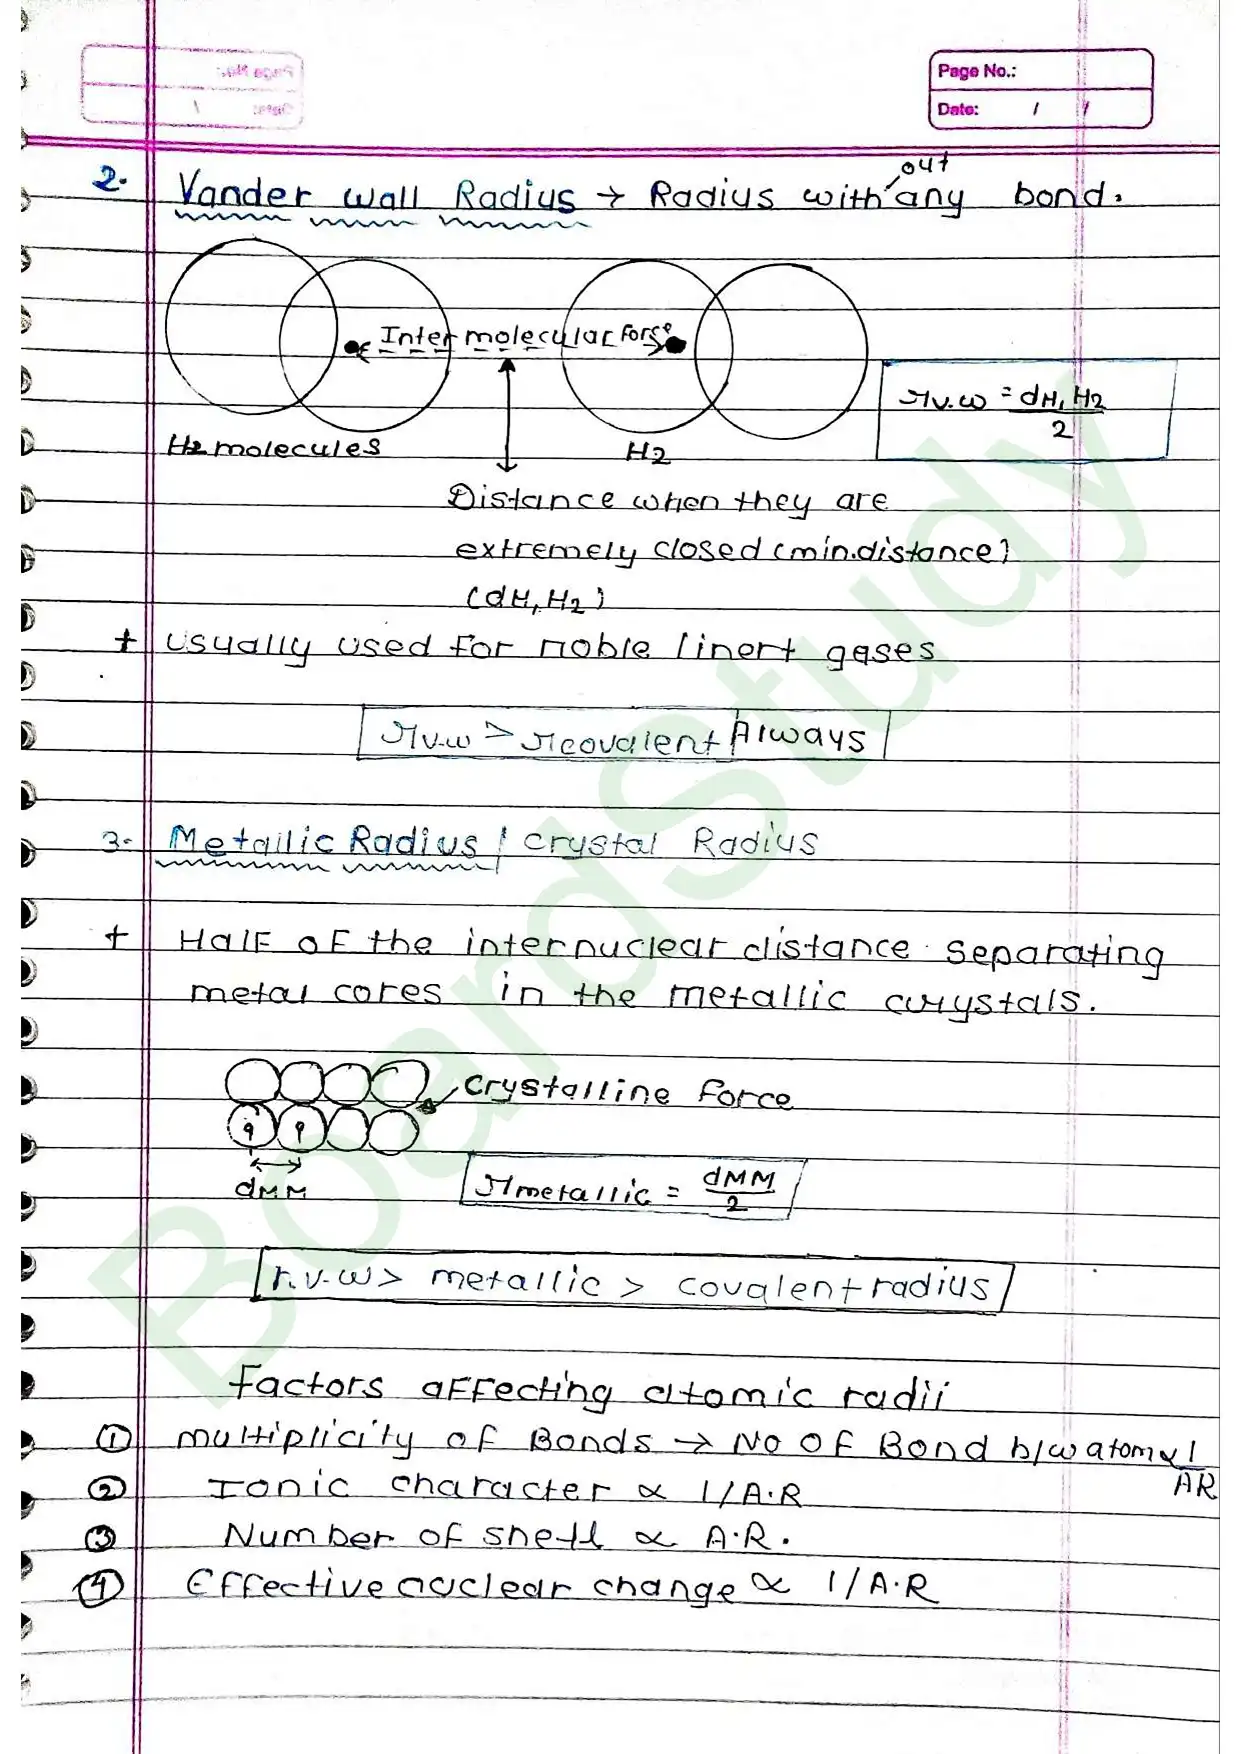 Page No.:
Date: / /
out
2. Vander wall Radius → Radius with any bond.
Inter molecular Force
r v.w = dH, H2 / 2
H2 molecules
H2
Distance when they are
extremely closed (min.distance)
(dH, H2)
+ usually used for noble / inert gases
r v.w > r covalent Always
3. Metallic Radius / crystal Radius
+ Half of the internuclear distance separating
metal cores in the metallic crystals.
crystalline force
dMM
r metallic = dMM / 2
r.v.w > metallic > covalent radius
Factors affecting atomic radii
① multiplicity of Bonds → No of Bond b/w atom ∝ 1/AR
② Ionic character ∝ 1/A.R
③ Number of shell ∝ A.R.
④ Effective nuclear change ∝ 1/A.R
BoardStudy